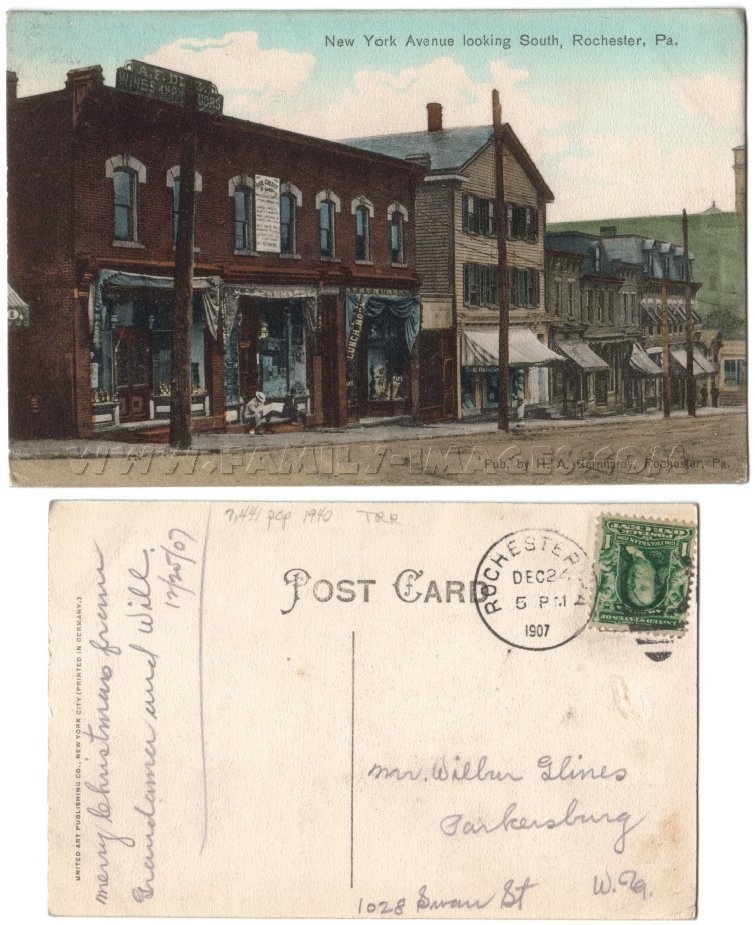 New York Avenue looking South, Rochester, Pa.
WINES AND LIQUORS
LUNCH ROOM
WWW.FAMILY-IMAGES.COM
Pub. by H. A. Bernhardy, Rochester, Pa.
7,441 pop 1940 TRR
POST CARD
ROCHESTER
DEC 24
5 PM
1907
merry Christmas from
Grandama and Will.
12/25/07
UNITED ART PUBLISHING CO., NEW YORK CITY. (PRINTED IN GERMANY.)
Mr. Wilbur Glines
Parkersburg
1028 Swan St W. Va.